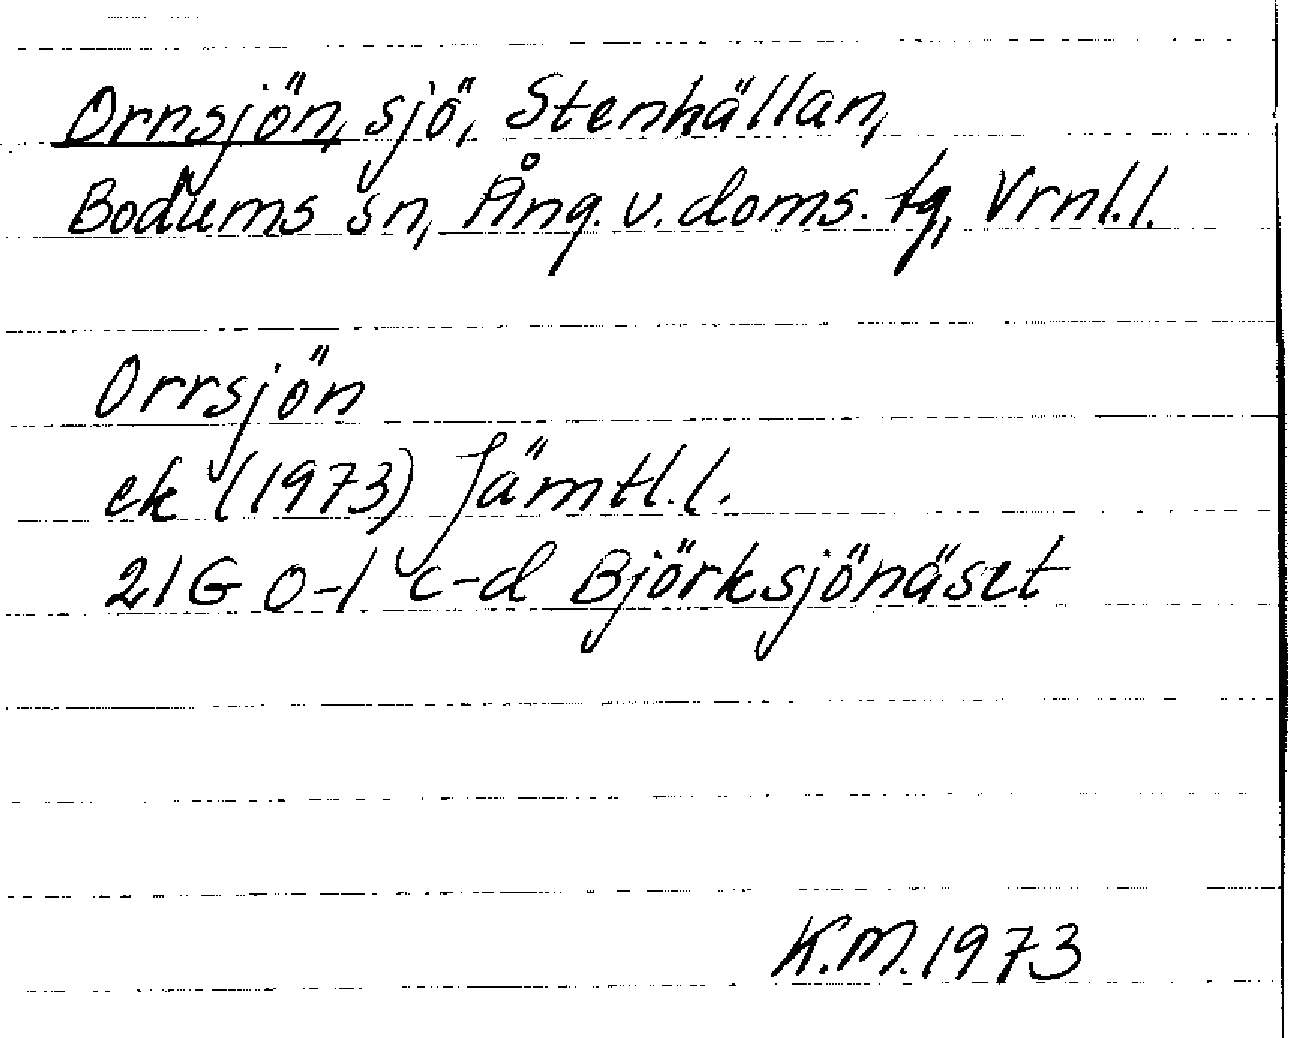 Ornsjön, sjö, Stenhällan,
Bodums sn, Ång. v. doms. tg, Vrnl.l.
Orrsjön
ek (1973) Jämtl.l.
21G 0-1 c-d Björksjönäset
K.M. 1973